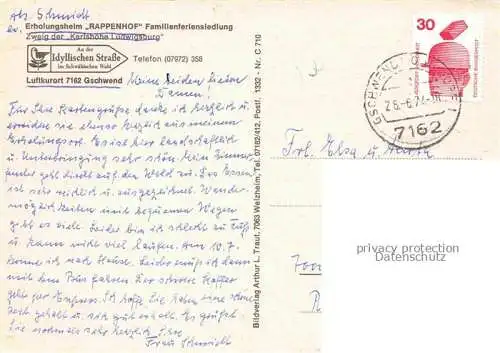 Abs. Schmidt
Erholungsheim „RAPPENHOF" Familienferiensiedlung
Zweig der „Karlshöhe Ludwigsburg"
An der
Idyllischen Straße
im Schwäbischen Wald
Telefon (07972) 358
Luftkurort 7162 Gschwend
Meine beiden lieben
Damen!
Für Ihre Kartengrüße danke ich herzlich u.
erwidere sie ebenso herzlich aus meinem
Erholungsort. Es ist hier landschaftlich
u. Unterbringung sehr schön. Mein Zimmer-
fenster geht direkt auf den Wald zu. Das Essen
ist sehr reichlich u. ausgezeichnet. Wander-
möglichkeiten mit bequemen Wegen
gibt es viele. Leider bin ich schlecht zu Fuß
u. kann nicht viel laufen. Am 10.7.
komme ich nach Hause. Leider muß ich dann
mit dem Bus fahren. Der schwere Koffer
geht per Express. Ich hoffe Sie haben eine schöne
Zeit gehabt u. sich gut erholt. Es grüßt
Sie nochmals sehr herzlich Ihre
Frau Schmidt
Bildverlag Arthur L. Traut, 7063 Welzheim, Tel. 07182/412, Postf. 1332 - Nr. C 710
30
DEUTSCHE BUNDESPOST
GSCHWEND
7162
Frl. Elsa u. Marta
privacy protection
Datenschutz